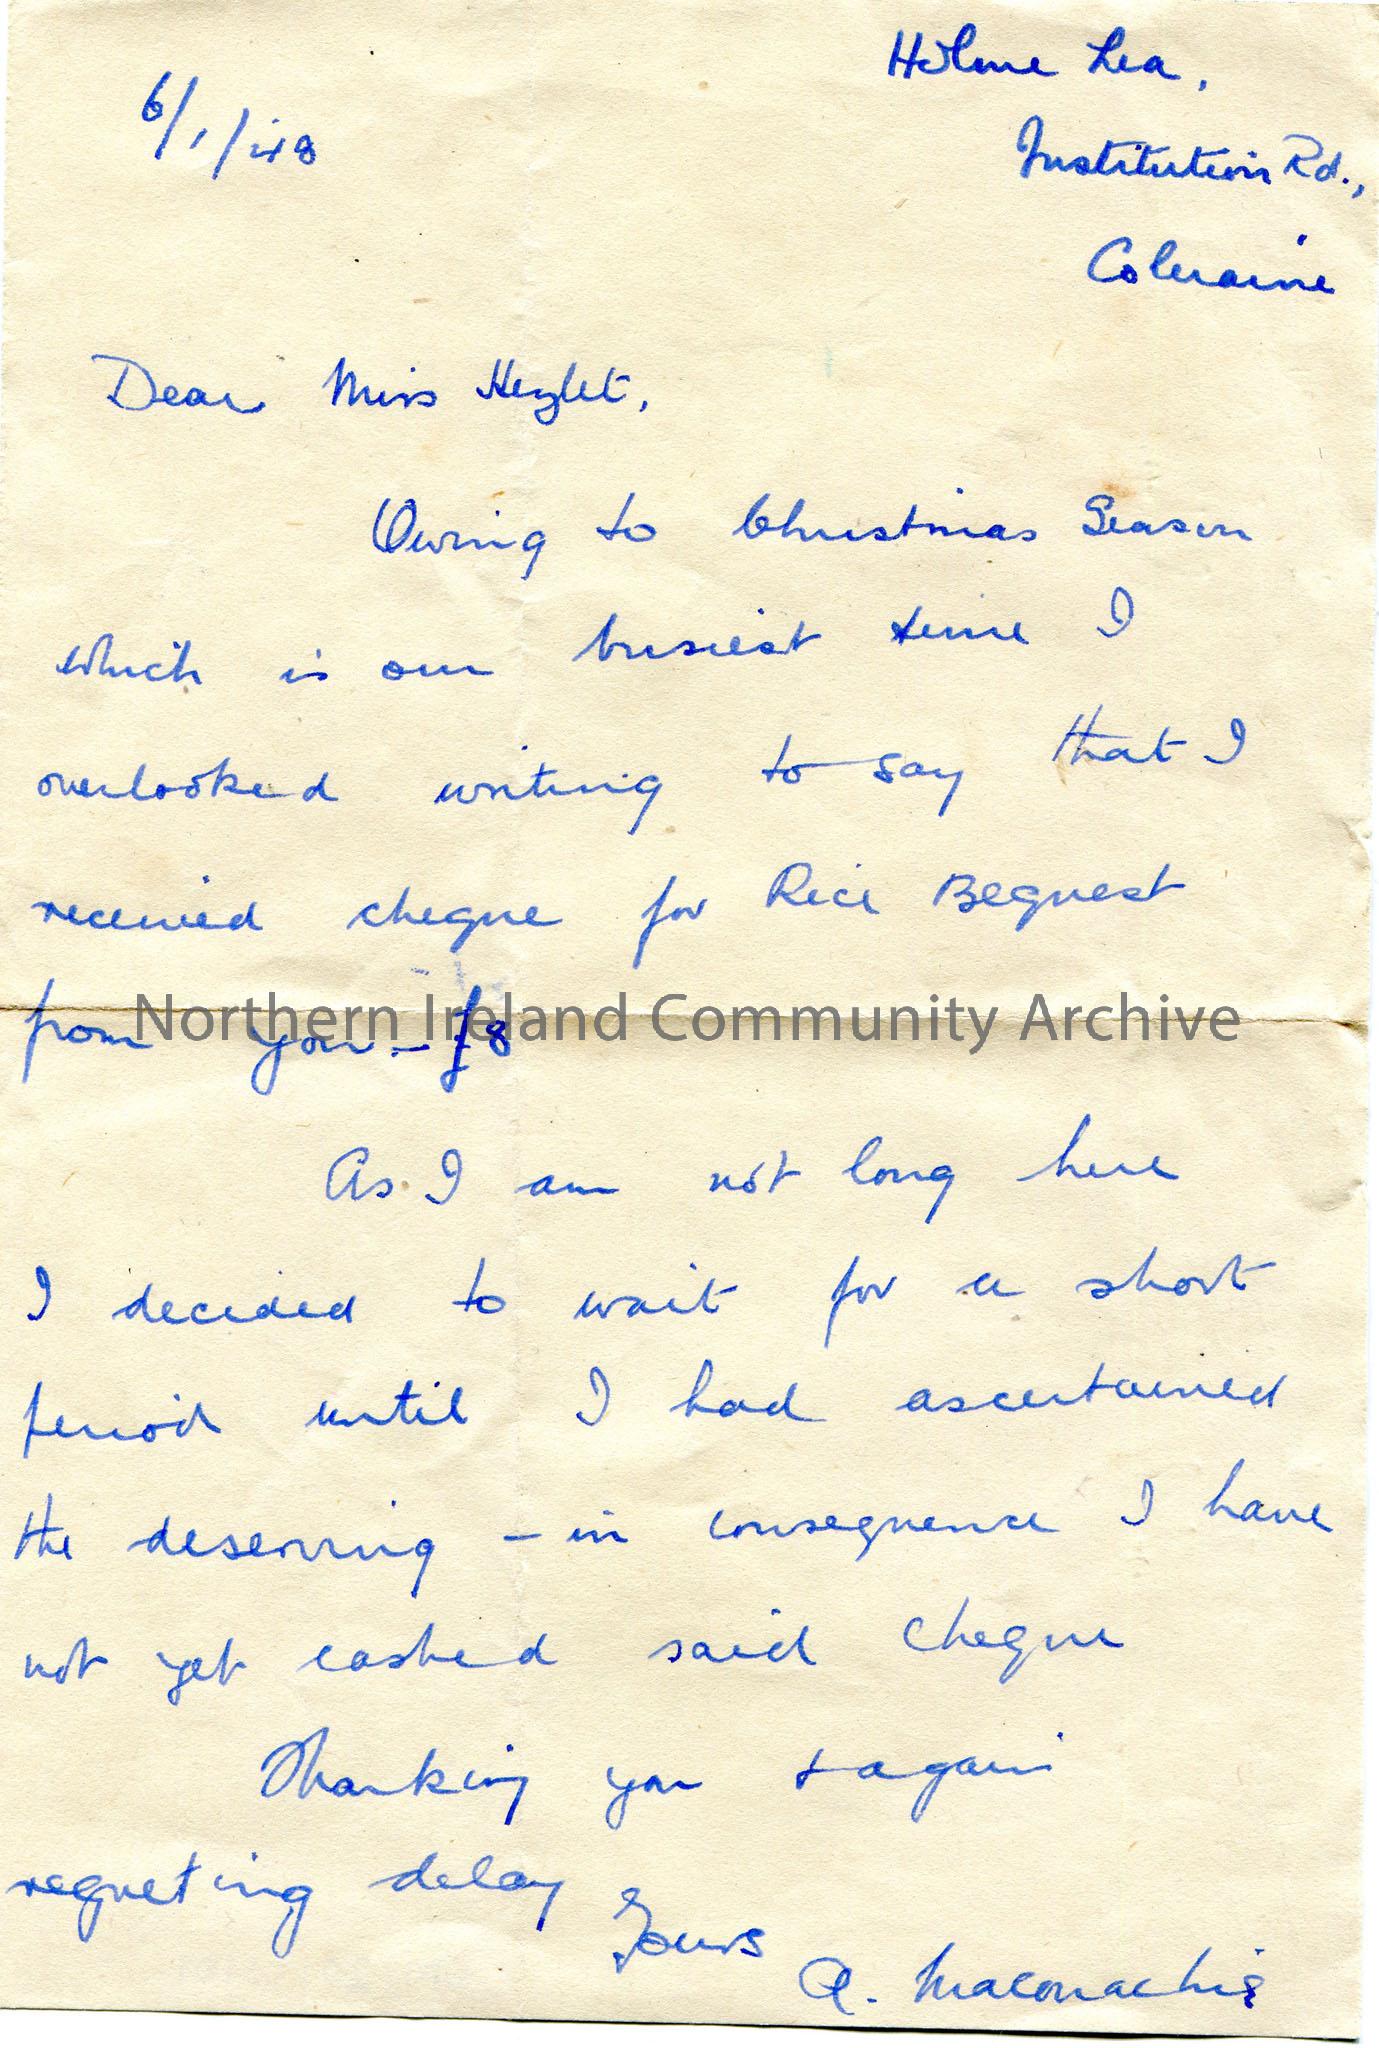 6/1/48
Holme Lea,
Institution Rd.,
Coleraine
Dear Miss Hezlet,
Owing to Christmas Season
which is our busiest time I
overlooked writing to say that I
received cheque for Rice Bequest
from you – £8
Northern Ireland Community Archive
As I am not long here
I decided to wait for a short
period until I had ascertained
the deserving – in consequence I have
not yet cashed said cheque
Thanking you & again
regreting delay
Yours
A. Maconachie